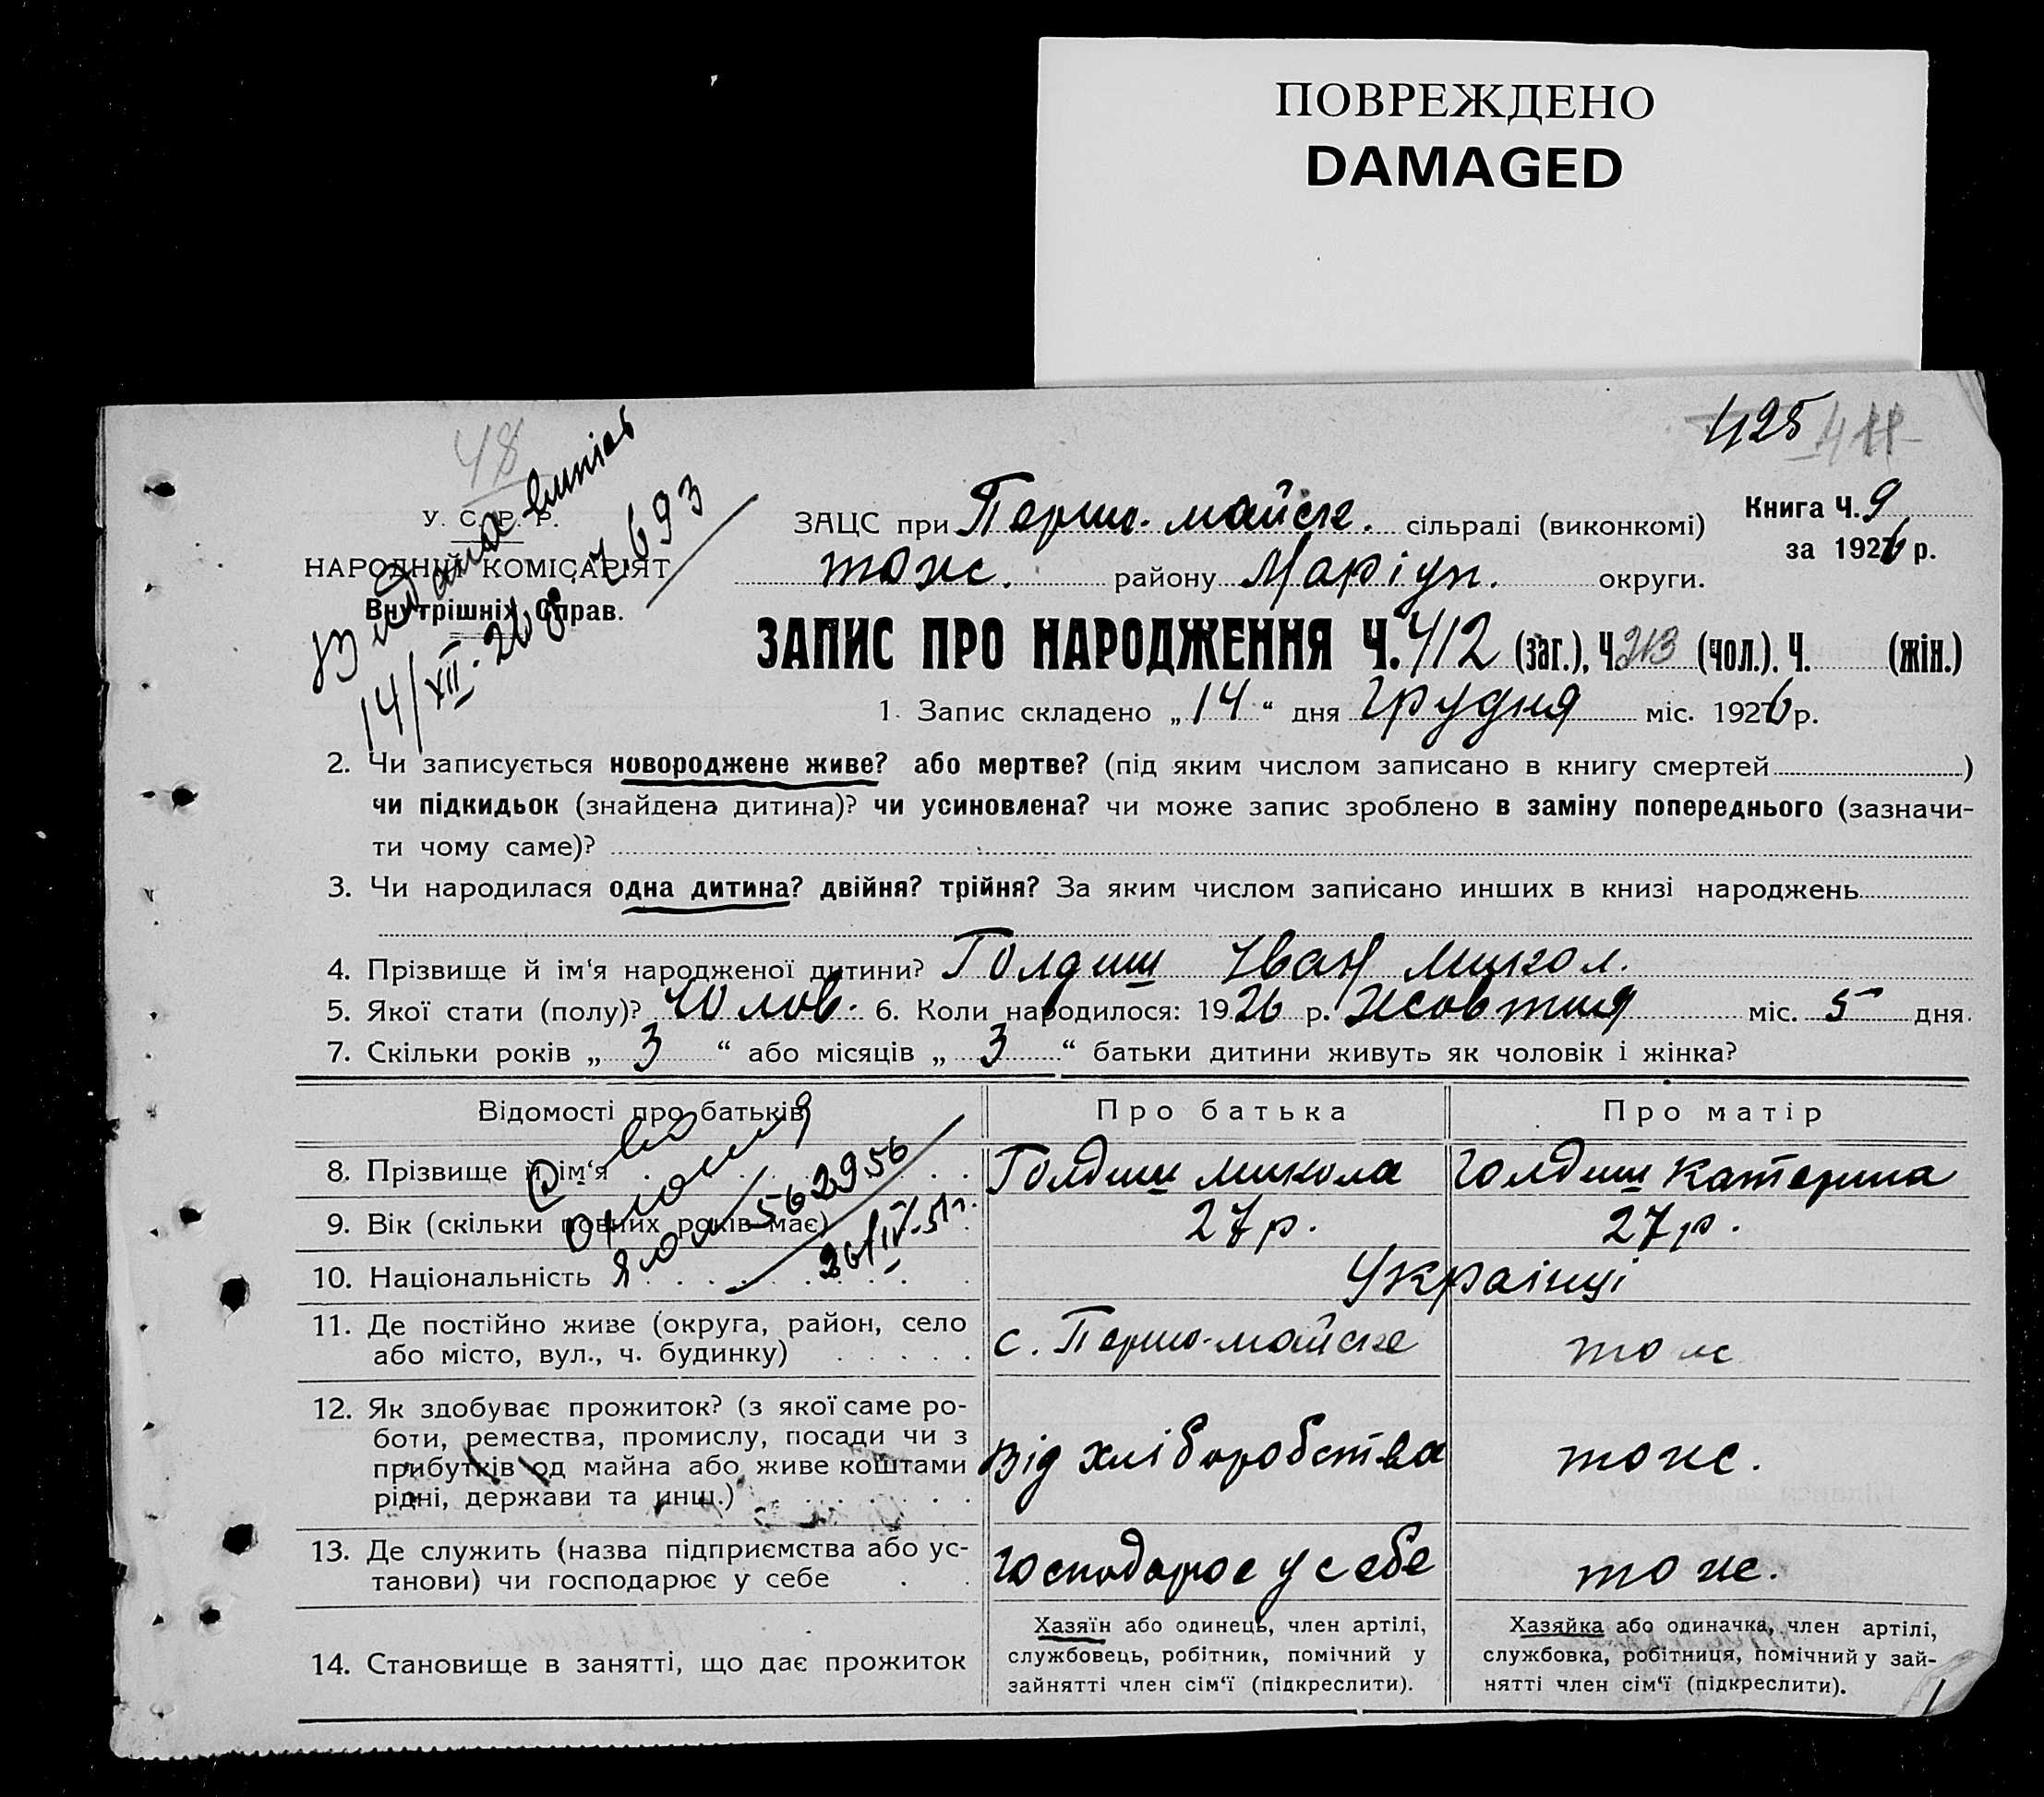 ПОВРЕЖДЕНО
DAMAGED
425
48
У. С. Р. Р.
НАРОДНИЙ КОМІСАРІЯТ
Внутрішніх Справ.
Видана виписъ
14/XII-26 р. 7693
ЗАЦС при Першо-майск. сільраді (виконкомі)
Книга Ч. 9
за 1926 р.
тож. району Маріуп. округи.
ЗАПИС ПРО НАРОДЖЕННЯ Ч. 412 (заг.), Ч. 213 (чол.). Ч. (жін.)
1. Запис складено „ 14 “ дня Грудня міс. 1926 р.
2. Чи записується новороджене живе? або мертве? (під яким числом записано в книгу смертей )
чи підкидьок (знайдена дитина)? чи усиновлена? чи може запис зроблено в заміну попереднього (зазначи-
ти чому саме)?
3. Чи народилася одна дитина? двійня? трійня? За яким числом записано инших в книзі народжень
4. Прізвище й ім‘я народженої дитини? Голдиш Іван Микол.
5. Якої стати (полу)? Чолов. 6. Коли народилося: 1926 р. Жовтня міс. 5 дня.
7. Скільки років „ 3 “ або місяців „ 3 “ батьки дитини живуть як чоловік і жінка?
Відомості про батьків
Про батька
Про матір
8. Прізвище й ім‘я
Голдиш Микола
Голдиш Катерина
9. Вік (скільки повних років має)
27 р.
27 р.
562956
10. Національність
Украінці
11. Де постійно живе (округа, район, село
або місто, вул., ч. будинку)
с. Першо-майске
тож
12. Як здобуває прожиток? (з якої саме ро-
боти, ремества, промислу, посади чи з
прибутків од майна або живе коштами
рідні, держави та инш.)
від хліборобства
тож.
13. Де служить (назва підприємства або ус-
танови) чи господарює у себе
господарює у себе
тож.
14. Становище в занятті, що дає прожиток
Хазяїн або одинець, член артілі,
службовець, робітник, помічний у
зайнятті член сім‘ї (підкреслити).
Хазяйка або одиначка, член артілі,
службовка, робітниця, помічний у зай-
нятті член сім‘ї (підкреслити).